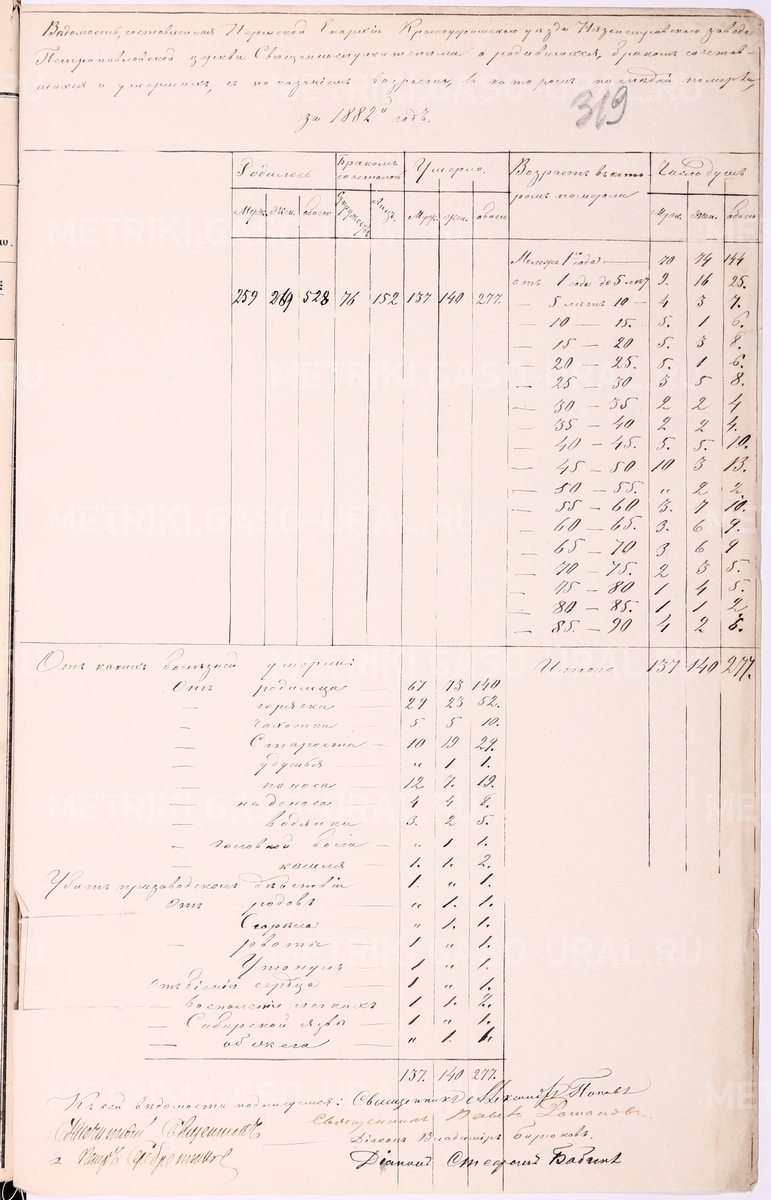 Ведомость, составленная Пермской Епархіи Красноуфимскаго уезда Нязепетровскаго завода
Петропавловской церкви Священнослужителями о родившихся, бракомъ сочетав-
шихся и умершихъ, съ показаніемъ возраста, въ которомъ последніе померли,
за 1882й годъ.
319
Родилось Бракомъ сочеталось Умерло. Возрастъ въ кото-ромъ померли Число душъ
Муж. Жен. обоего Супружествъ Лицъ Муж. Жен. обоего Муж. Жен. обоего
Моложе 1го года — 70 74 144
отъ 1 года до 5 летъ 9. 16 25.
259 269 528 76 152 137 140 277.
— 5 летъ 10 — 4 3 7.
— 10 — 15. 5. 1 6.
— 15 — 20 5. 3 8.
— 20 — 25. 5. 1 6.
— 25 — 30 3 5 8.
— 30 — 35 2 2 4
— 35 — 40 2 2 4.
— 40 — 45. 5. 5. 10.
— 45 — 50 10 3 13.
— 50 — 55. „ 2 2.
— 55 — 60 3. 7 10.
— 60 — 65. 3. 6 9.
— 65 — 70 3 6 9
— 70 — 75. 2 3 5.
— 75 — 80 1 4 5.
— 80 — 85. 1 1 2
— 85. — 90 4 2 6.
Отъ какихъ болезней умерли: Итого 137 140 277.
Отъ родимца — 67 73 140
— горячки — 29 23 52.
— чахотки — 5 5 10.
— Старости — 10 19 29.
— удушья „ 1 1.
— поноса 12 7. 19.
— недоноса 4 4 8.
— водянки 3. 2 5.
— головной боли „ 1 1.
— кашля 1. 1. 2.
Убитъ при заводскомъ действіи 1. „ 1.
Отъ родовъ — „ 1. 1.
Сгорела „ 1. 1.
— рвоты — 1 „ 1.
Утонулъ 1 „ 1.
Отъ біенія сердца — 1 „ 1.
— воспаленія легкихъ 1 1. 2.
— Сибирской язвы — 1 „ 1.
— обжога — „ 1. 1.
137. 140 277.
Къ сей ведомости подписуемся: Священникъ Александръ Поповъ
Священникъ Павелъ
Священникъ
Діаконъ Владиміръ Бирюковъ.
Діаконъ Стефанъ Бабинъ
METRIKI.GASO-URAL.RU